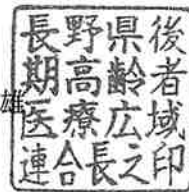 長野県後
期高齢者
医療広域
連合長之印
雄